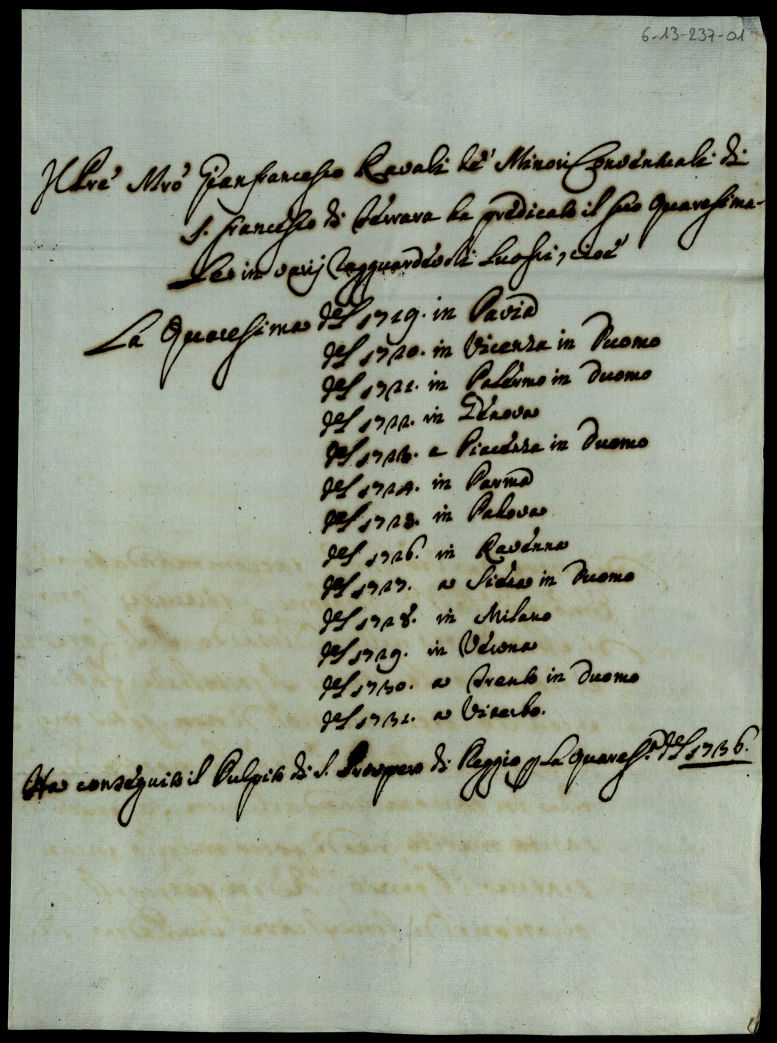 6-13-237-01
Il Pre' Mro' Gianfrancesco Ravali de' Minori Conventuali di
S. Francesco di Ferrara ha predicato il suo Quaresima-
le in varij ragguardevoli Luoghi, cioè
La Quaresima del 1719. in Pavia
del 1720. in Vicenza in Duomo
del 1721. in Palermo in Duomo
del 1722. in Genova
del 1723. a Piacenza in Duomo
del 1724. in Parma
del 1725. in Padova
del 1726. in Ravenna
del 1727. a Siena in Duomo
del 1728. in Milano
del 1729. in Verona
del 1730. a Trento in Duomo
del 1731. a Viterbo.
Ha conseguito il Pulpito di S. Prospero di Reggio La Quares.a del 1736.